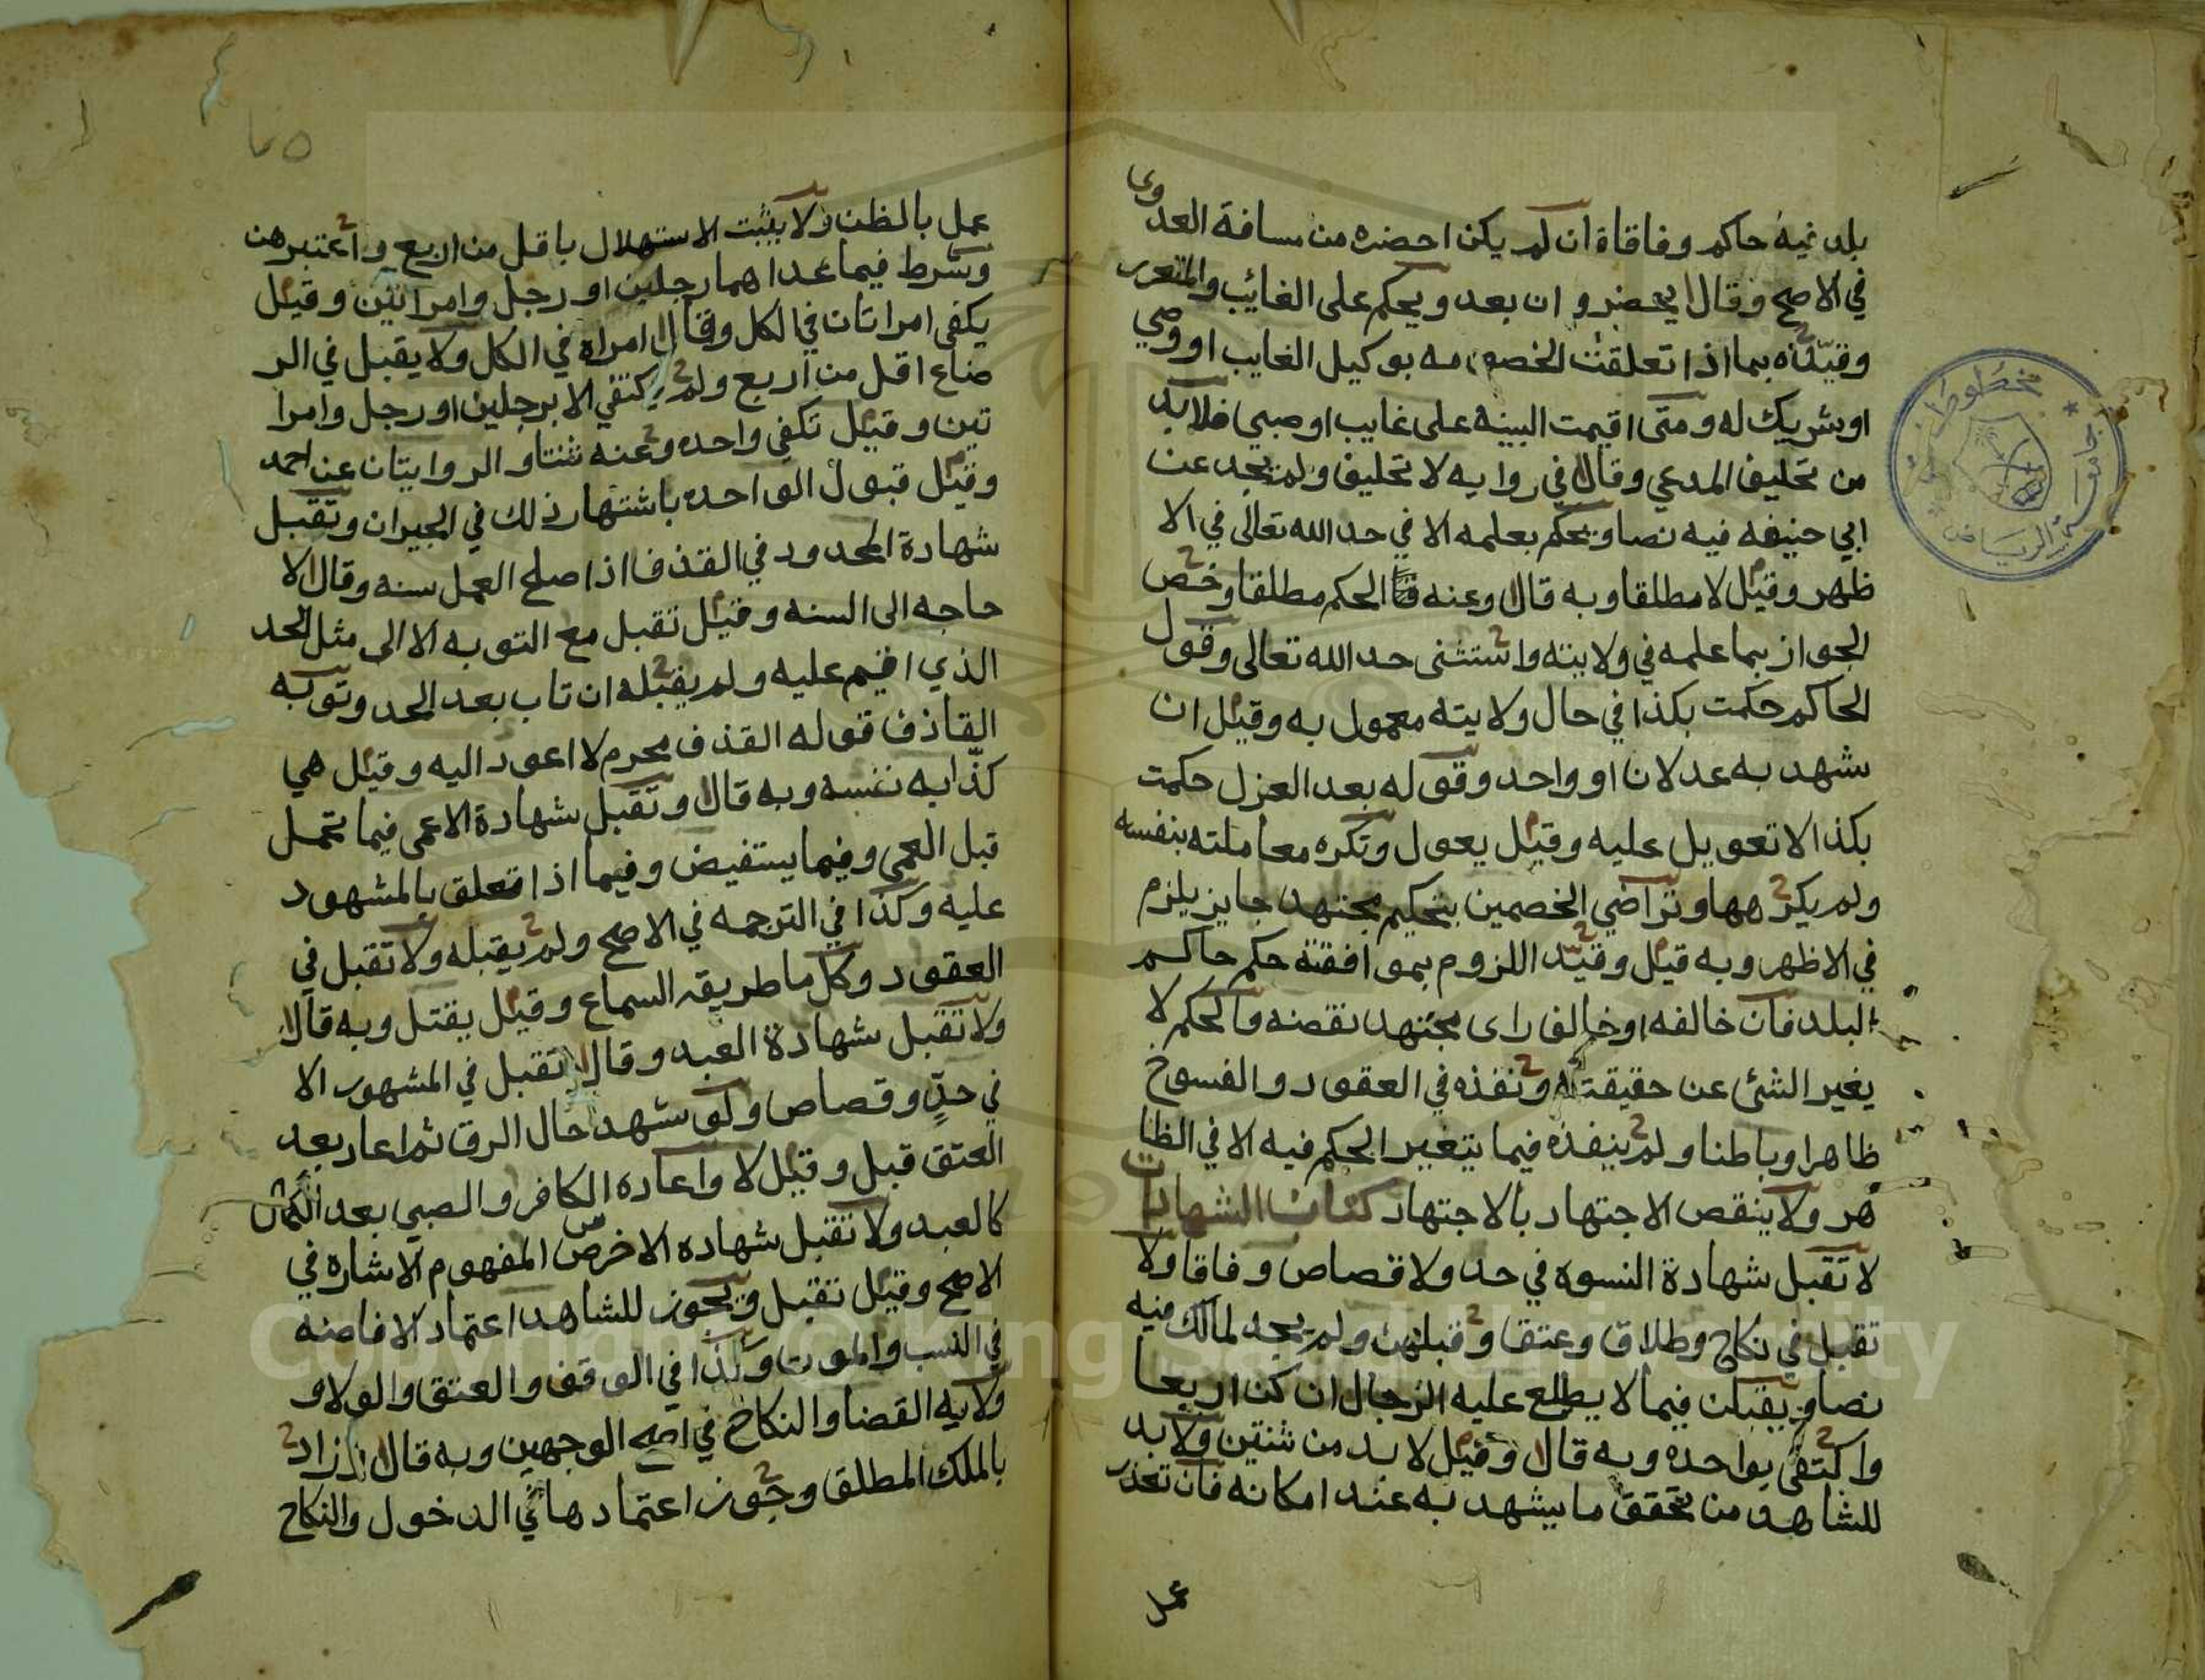 بلد فيه حاكم وفاقا فان لم يكن احضره من مسافة العدوى
في الاصح وقال يحضر وان بعد ويحكم على الغائب والمتعزر
وقيّده بما اذا تعلقت الخصومه بوكيل الغايب او وصي
او شريك له ومتى اقيمت البينه على غايب او صبي فلا بد
من تحليف المدعي وقال في روايه لا تحليف ولم يجد عن
ابي حنيفه فيه نصا ويحكم بعلمه الا في حد الله تعالى في الا
ظهر وقيل لا مطلقا وبه قال وعنه الحكم مطلقا وخص
الجواز بما علمه في ولايته واستثنى حد الله تعالى وقول
الحاكم حكمت بكذا في حال ولايته معمول به وقيل ان
شهد به عدلان او واحد وقوله بعد العزل حكمت
بكذا لا تعويل عليه وقيل يعول وتكره معاملته بنفسه
ولم يكرهها وتراضي الخصمين بتحكيم مجتهد جايز يلزم
في الاظهر وبه قيل وقيّد اللزوم بموافقته حكم حاكم
البلد فان خالفه او خالف راى مجتهد نقضه والحكم لا
يغير الشئ عن حقيقته ونفذه في العقود والفسوخ
ظاهرا وباطنا ولم ينفذه فيما يتغير الحكم فيه الا في الظا
هر ولا ينقض الاجتهاد بالاجتهاد كتاب الشهادات
لا تقبل شهادة النسوه في حد ولا قصاص وفاقا ولا
تقبل في نكاح وطلاق وعتق وقبلهن ولم يجد لمالك فيه
نصا ويقبلن فيما لا يطلع عليه الرجال ان كن اربعا
واكتفى بواحده وبه قال وقيل لا بد من ثنتين ولا بد
للشاهد من تحقق ما يشهد به عند امكانه فان تعذر
عمل
عمل بالظن ولا يثبت الاستهلال باقل من اربع واعتبرهن
وشرط فيما عداهما رجلين او رجل وامراتين وقيل
يكفي امراتان في الكل وقال امراة في الكل ولا يقبل في الر
ضاع اقل من اربع ولم يكتفي الا برجلين او رجل وامرا
تين وقيل تكفي واحده وعنه ثنتان والروايتان عن احمد
وقيل قبول الواحده باشتهار ذلك في الجيران وتقبل
شهادة المحدود في القذف اذا صلح العمل سنه وقال لا
حاجه الى السنه وقيل تقبل مع التوبه الا الى مثل الحد
الذي اقيم عليه ولم يقبله ان تاب بعد الحد وتوبه
القاذف قوله القذف محرم لا اعود اليه وقيل هي
كذابه نفسه وبه قال وتقبل شهادة الاعمى فيما تحمل
قبل العمى وفيما يستفيض وفيما اذا تعلق بالمشهود
عليه وكذا في الترجمه في الاصح ولم يقبله ولا تقبل في
العقود وكل ما طريقه السماع وقيل يقتل وبه قالا
ولا تقبل شهادة العبد وقال تقبل في المشهور الا
في حدٍ وقصاص ولو شهد حال الرق ثم اعاد بعد
العتق قبل وقيل لا واعاده الكافر والصبي بعد الكمال
كالعبد ولا تقبل شهاده الاخرص المفهوم الاشاره في
الاصح وقيل تقبل ويجوز للشاهد اعتماد الافاضه
في النسب والموت وكذا في الوقف والعتق والولا و
ولايه القضا والنكاح في اصح الوجهين وبه قال زاد
بالملك المطلق وجوز اعتمادها في الدخول والنكاح
مخطوطات
جامعة الرياض
Copyright © King Saud University